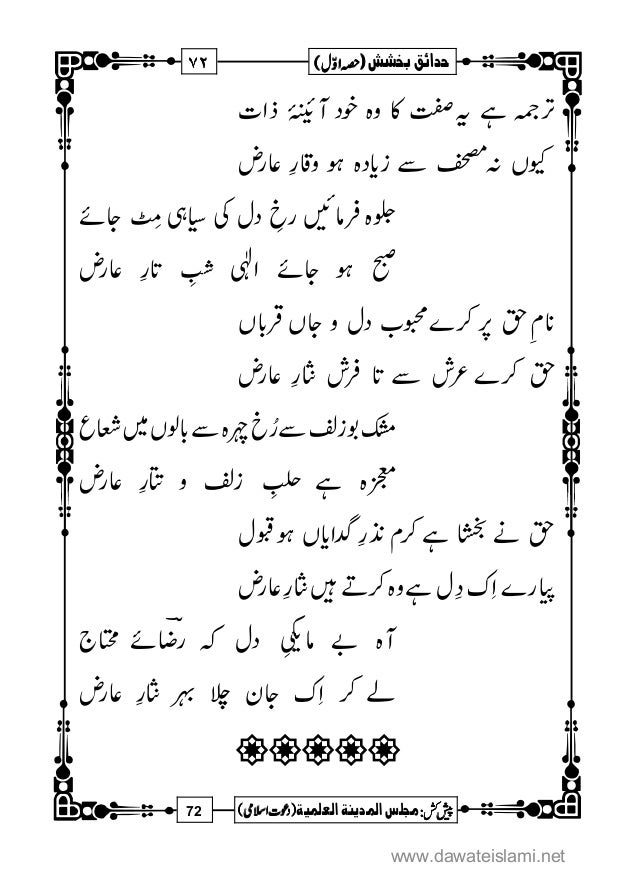 حدائق بخشش (حصہ اوّل)
۷۲
ترجمہ ہے یہ صفت کا وہ خود آئینۂ ذات
کیوں نہ مصحف سے زیادہ ہو وقارِ عارض
جلوہ فرمائیں رخِ دل کی سیاہی مِٹ جائے
صبح ہو جائے الٰہی شبِ تارِ عارض
نامِ حق پر کرے محبوب دل و جاں قرباں
حق کرے عرش سے تا فرش نثارِ عارض
مشک بو زلف سے رُخ چہرہ سے بالوں میں شعاع
معجزہ ہے حلبِ زلف و تتارِ عارض
حق نے بخشا ہے کرم نذرِ گدایاں ہو قبول
پیارے اِک دِل ہے وہ کرتے ہیں نثارِ عارض
آہ بے مایگیِ دل کہ رضؔائے محتاج
لے کر اِک جان چلا بہر نثارِ عارض
پیش کش: مجلس المدینة العلمیة (دعوت اسلامی)
72
www.dawateislami.net